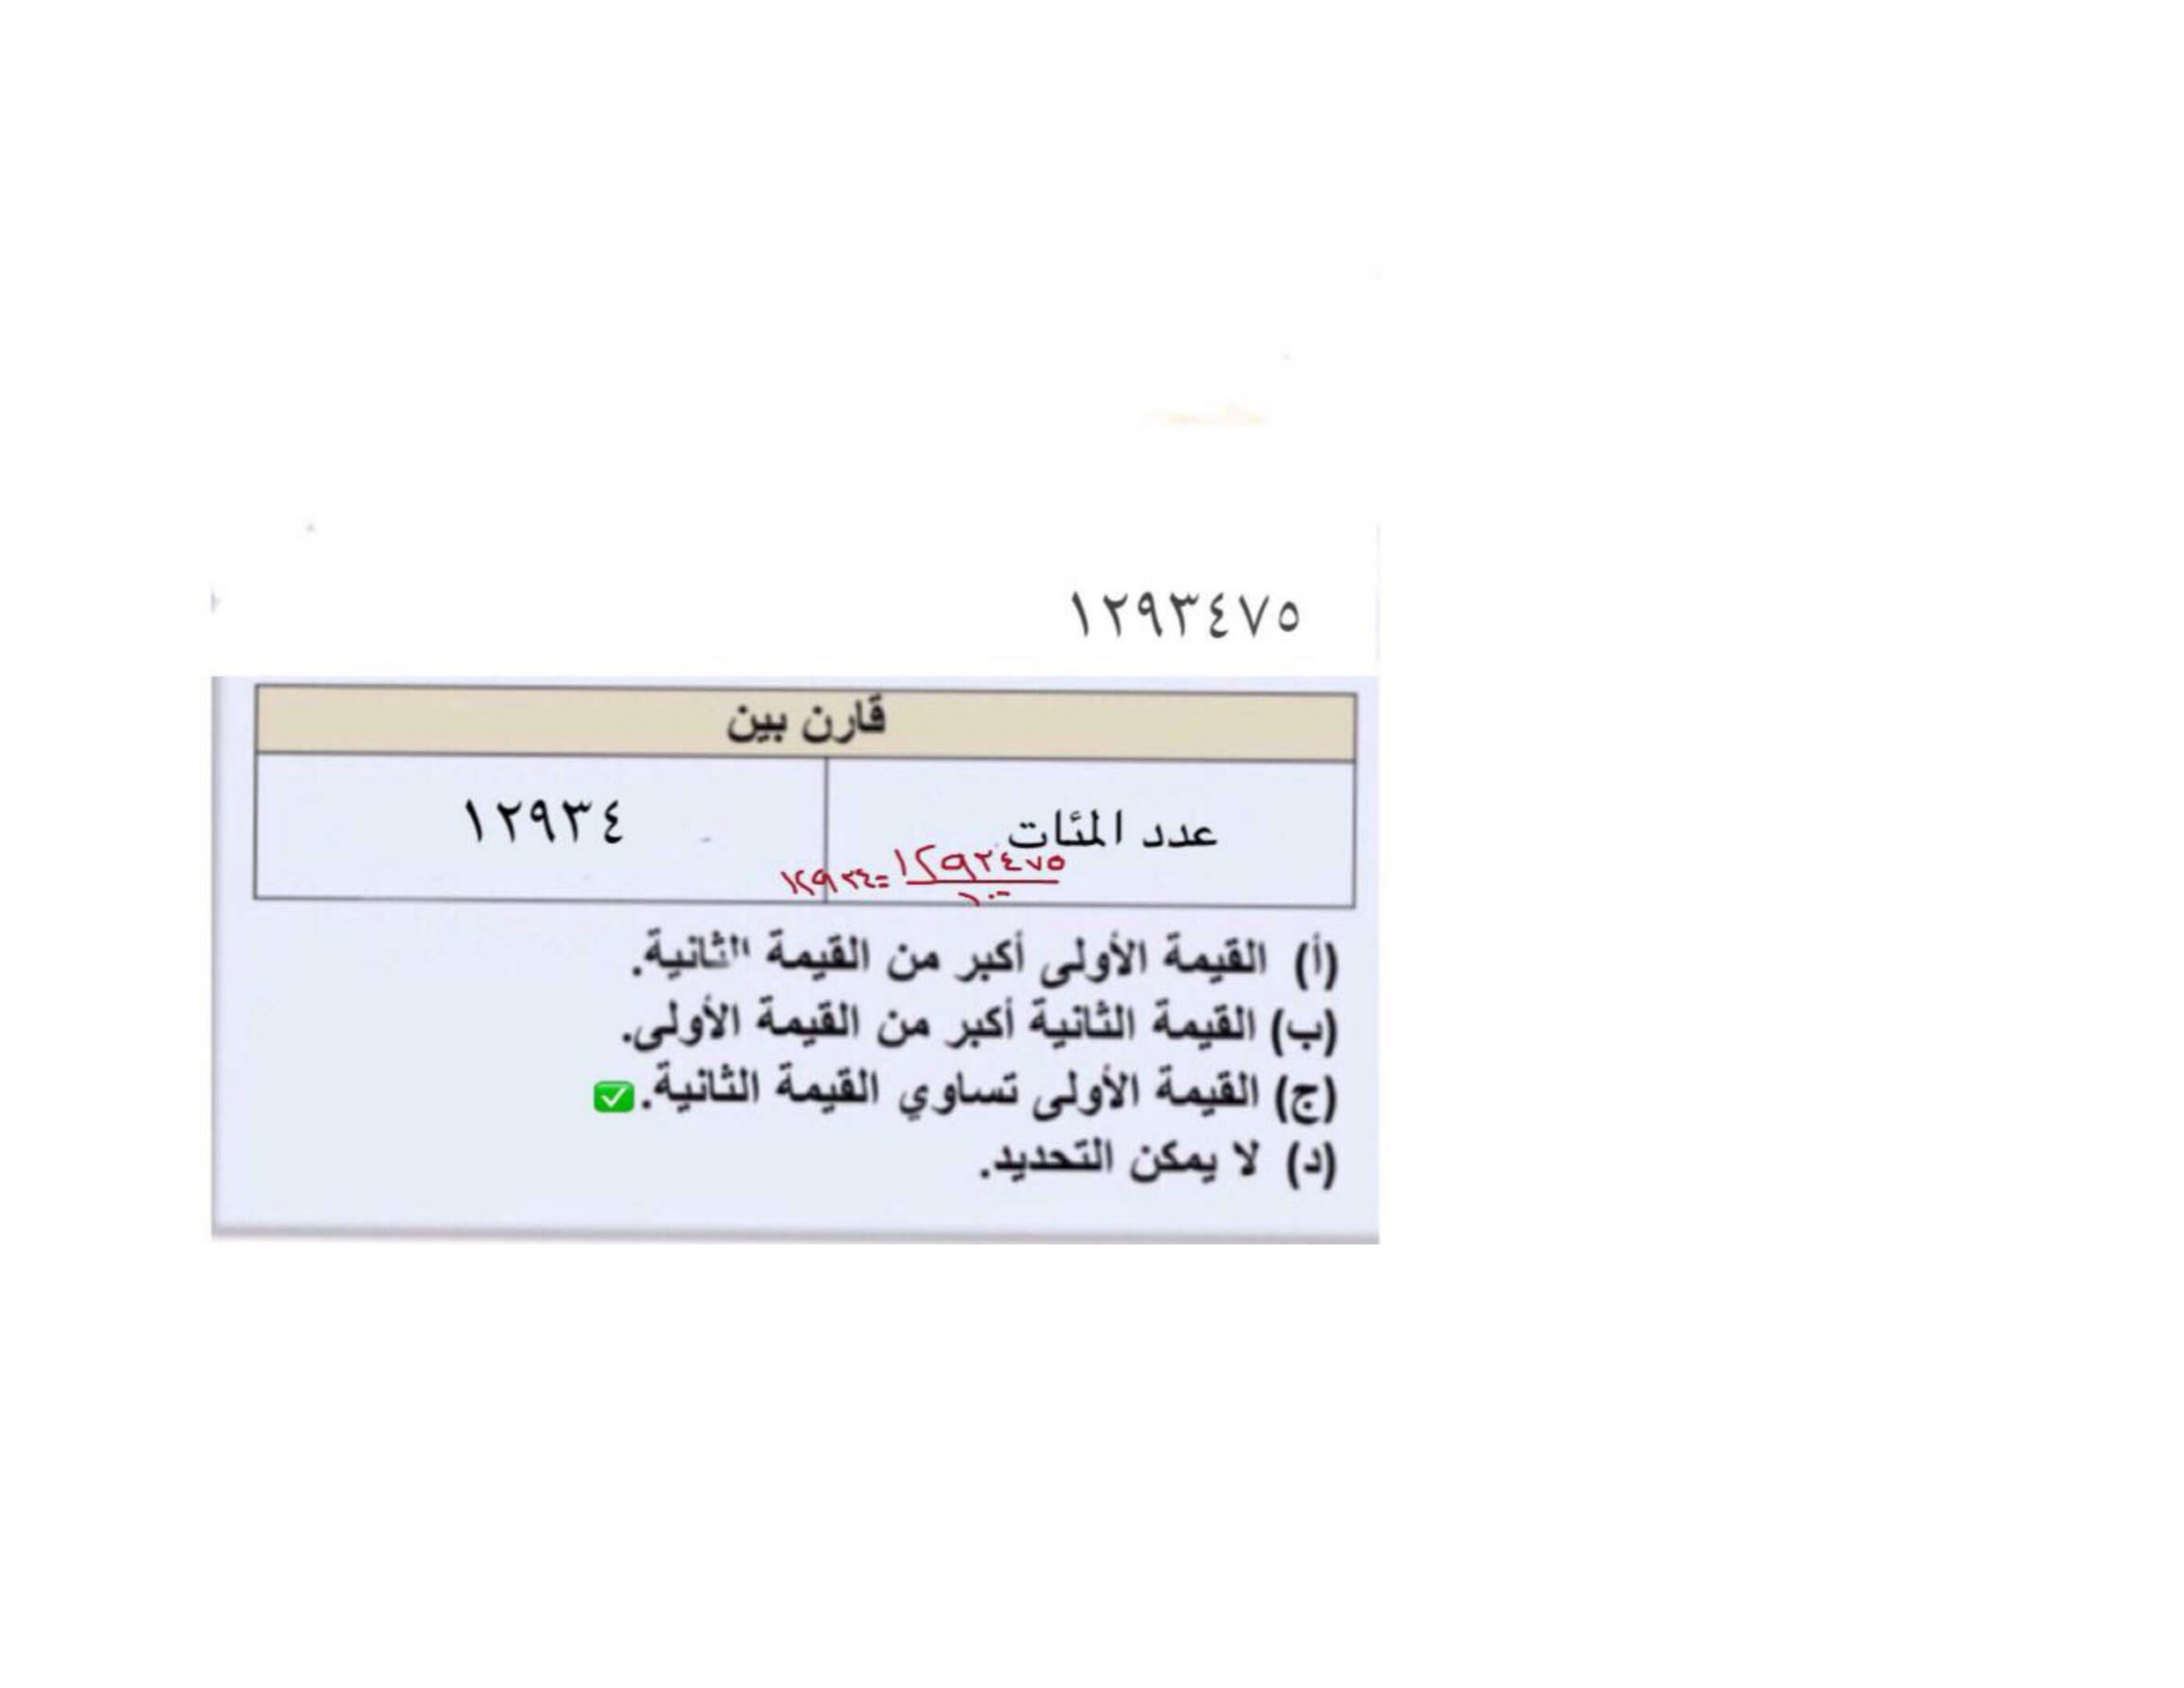 ١٢٩٣٤٧٥
قارن بين
عدد المئات
١٢٩٣٤
١٢٩٣٤٧٥
١٢٩٣٤=
١٠٠
(أ) القيمة الأولى أكبر من القيمة الثانية.
(ب) القيمة الثانية أكبر من القيمة الأولى.
(ج) القيمة الأولى تساوي القيمة الثانية.
(د) لا يمكن التحديد.